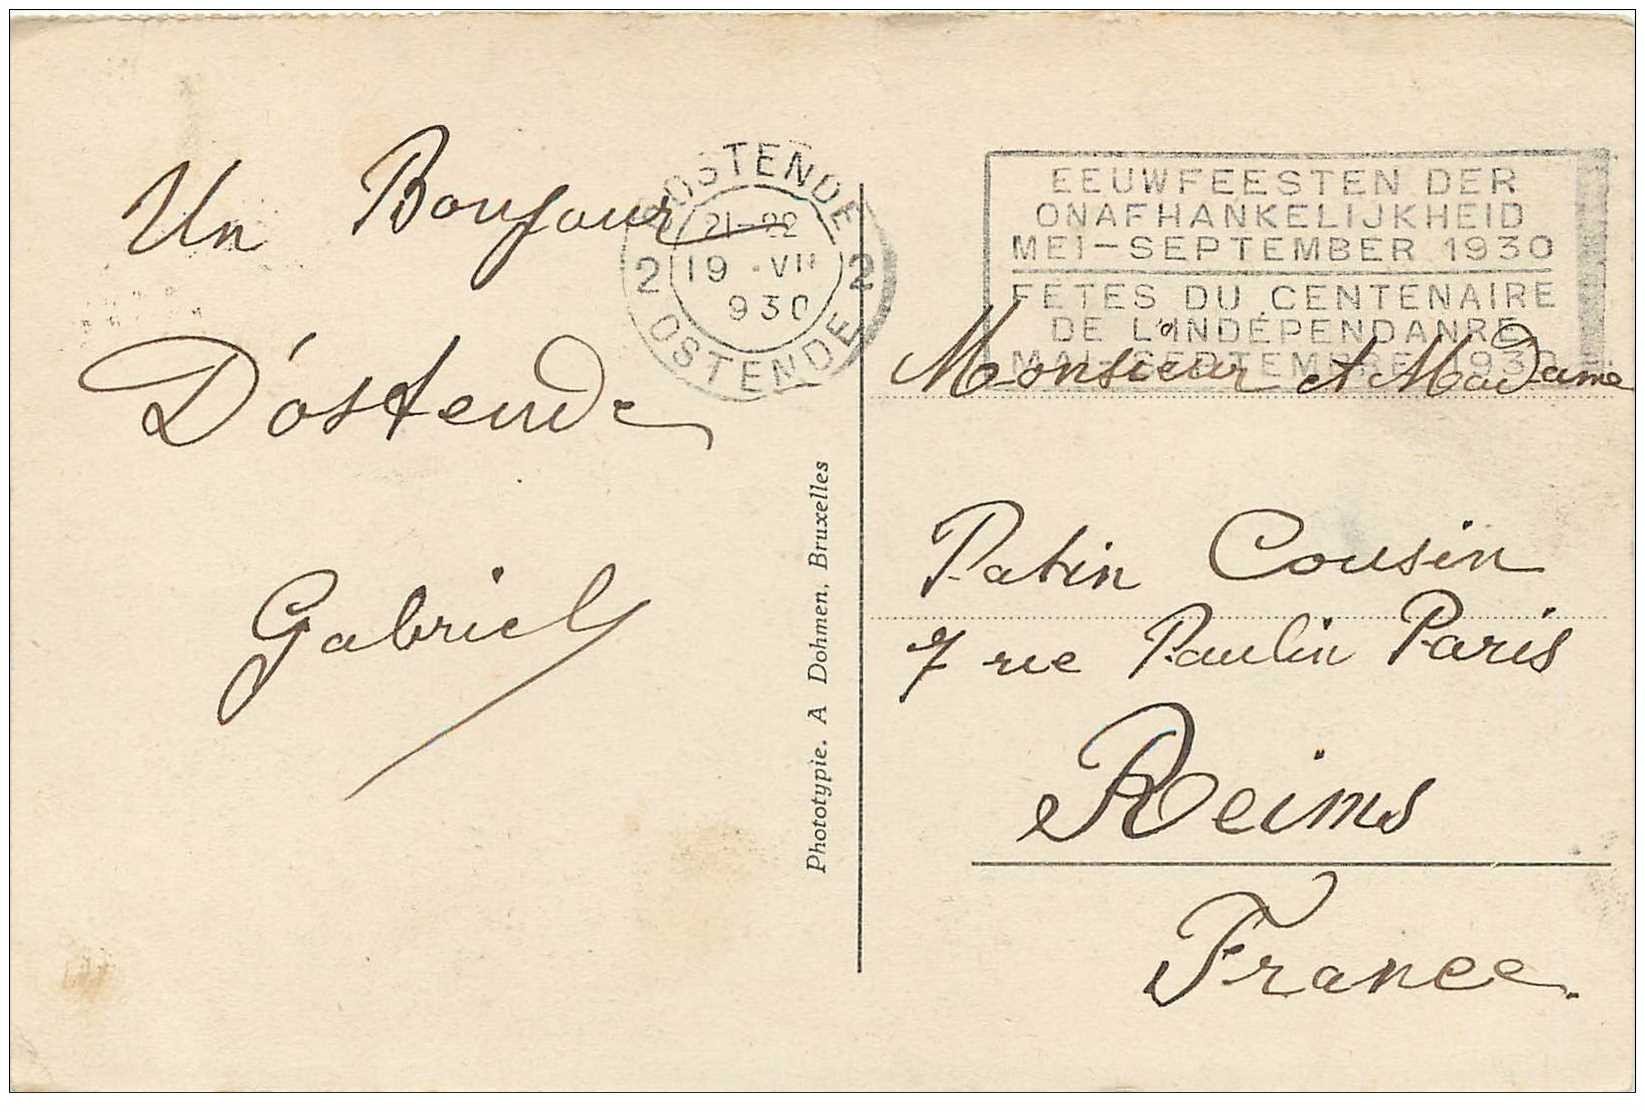 Un Bonjour
D'ostende
Gabriel
OOSTENDE
21-22
2 19 VII 2
930
OSTENDE
EEUWFEESTEN DER
ONAFHANKELIJKHEID
MEI-SEPTEMBER 1930
FETES DU CENTENAIRE
DE L'INDÉPENDANRE
MAI-SEPTEMBRE 1930
Phototypie. A Dohmen. Bruxelles
Monsieur et Madame
Patin Cousin
7 rue Paulin Paris
Reims
France.